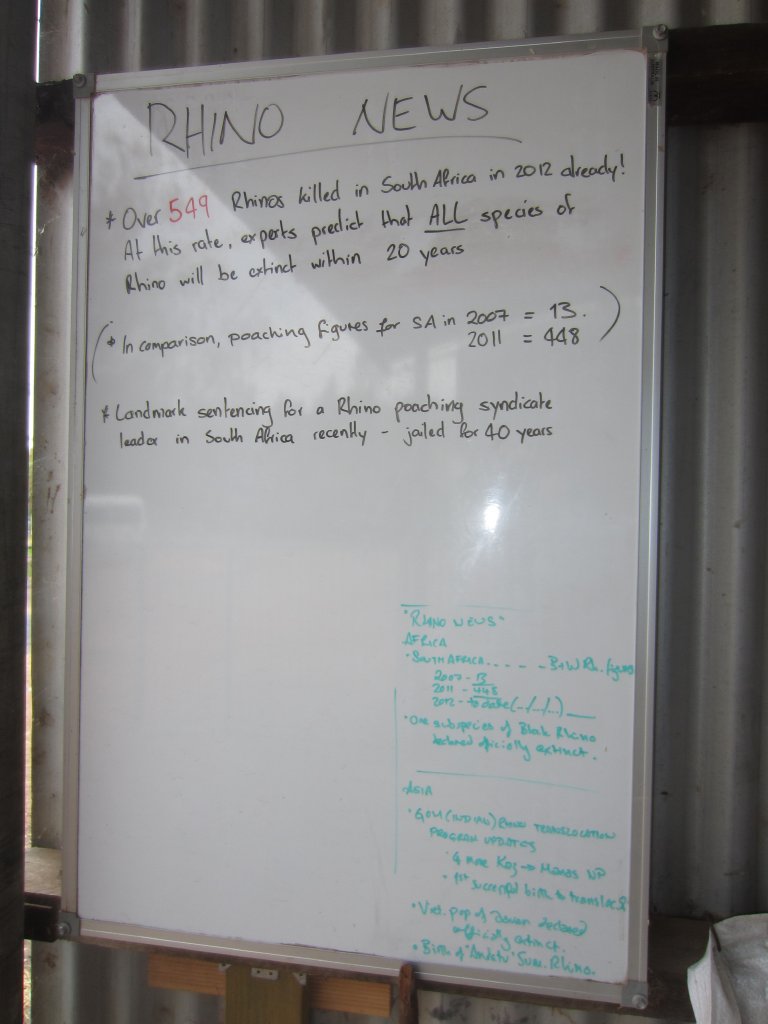 RHINO NEWS
* Over 549 Rhinos killed in South Africa in 2012 already!
At this rate, experts predict that ALL species of
Rhino will be extinct within 20 years
(* In comparison, poaching figures for SA in 2007 = 13.
2011 = 448)
* Landmark sentencing for a Rhino poaching syndicate
leader in South Africa recently - jailed for 40 years
"RHINO NEWS"
AFRICA
• SOUTH AFRICA . . . . . - B+W Rh. figures
2007 - 13
2011 - 448
2012 - to date (../../..) __
• One subspecies of Black Rhino
declared officially extinct.
ASIA
• GOH (INDIAN) RHINO TRANSLOCATION
PROGRAM UPDATES
4 more Kaz → Manas NP
• 1st successful birth to transloc. ♀
• Viet. pop of Javan declared
officially extinct.
• Birth of "Andatu" Sum. Rhino.